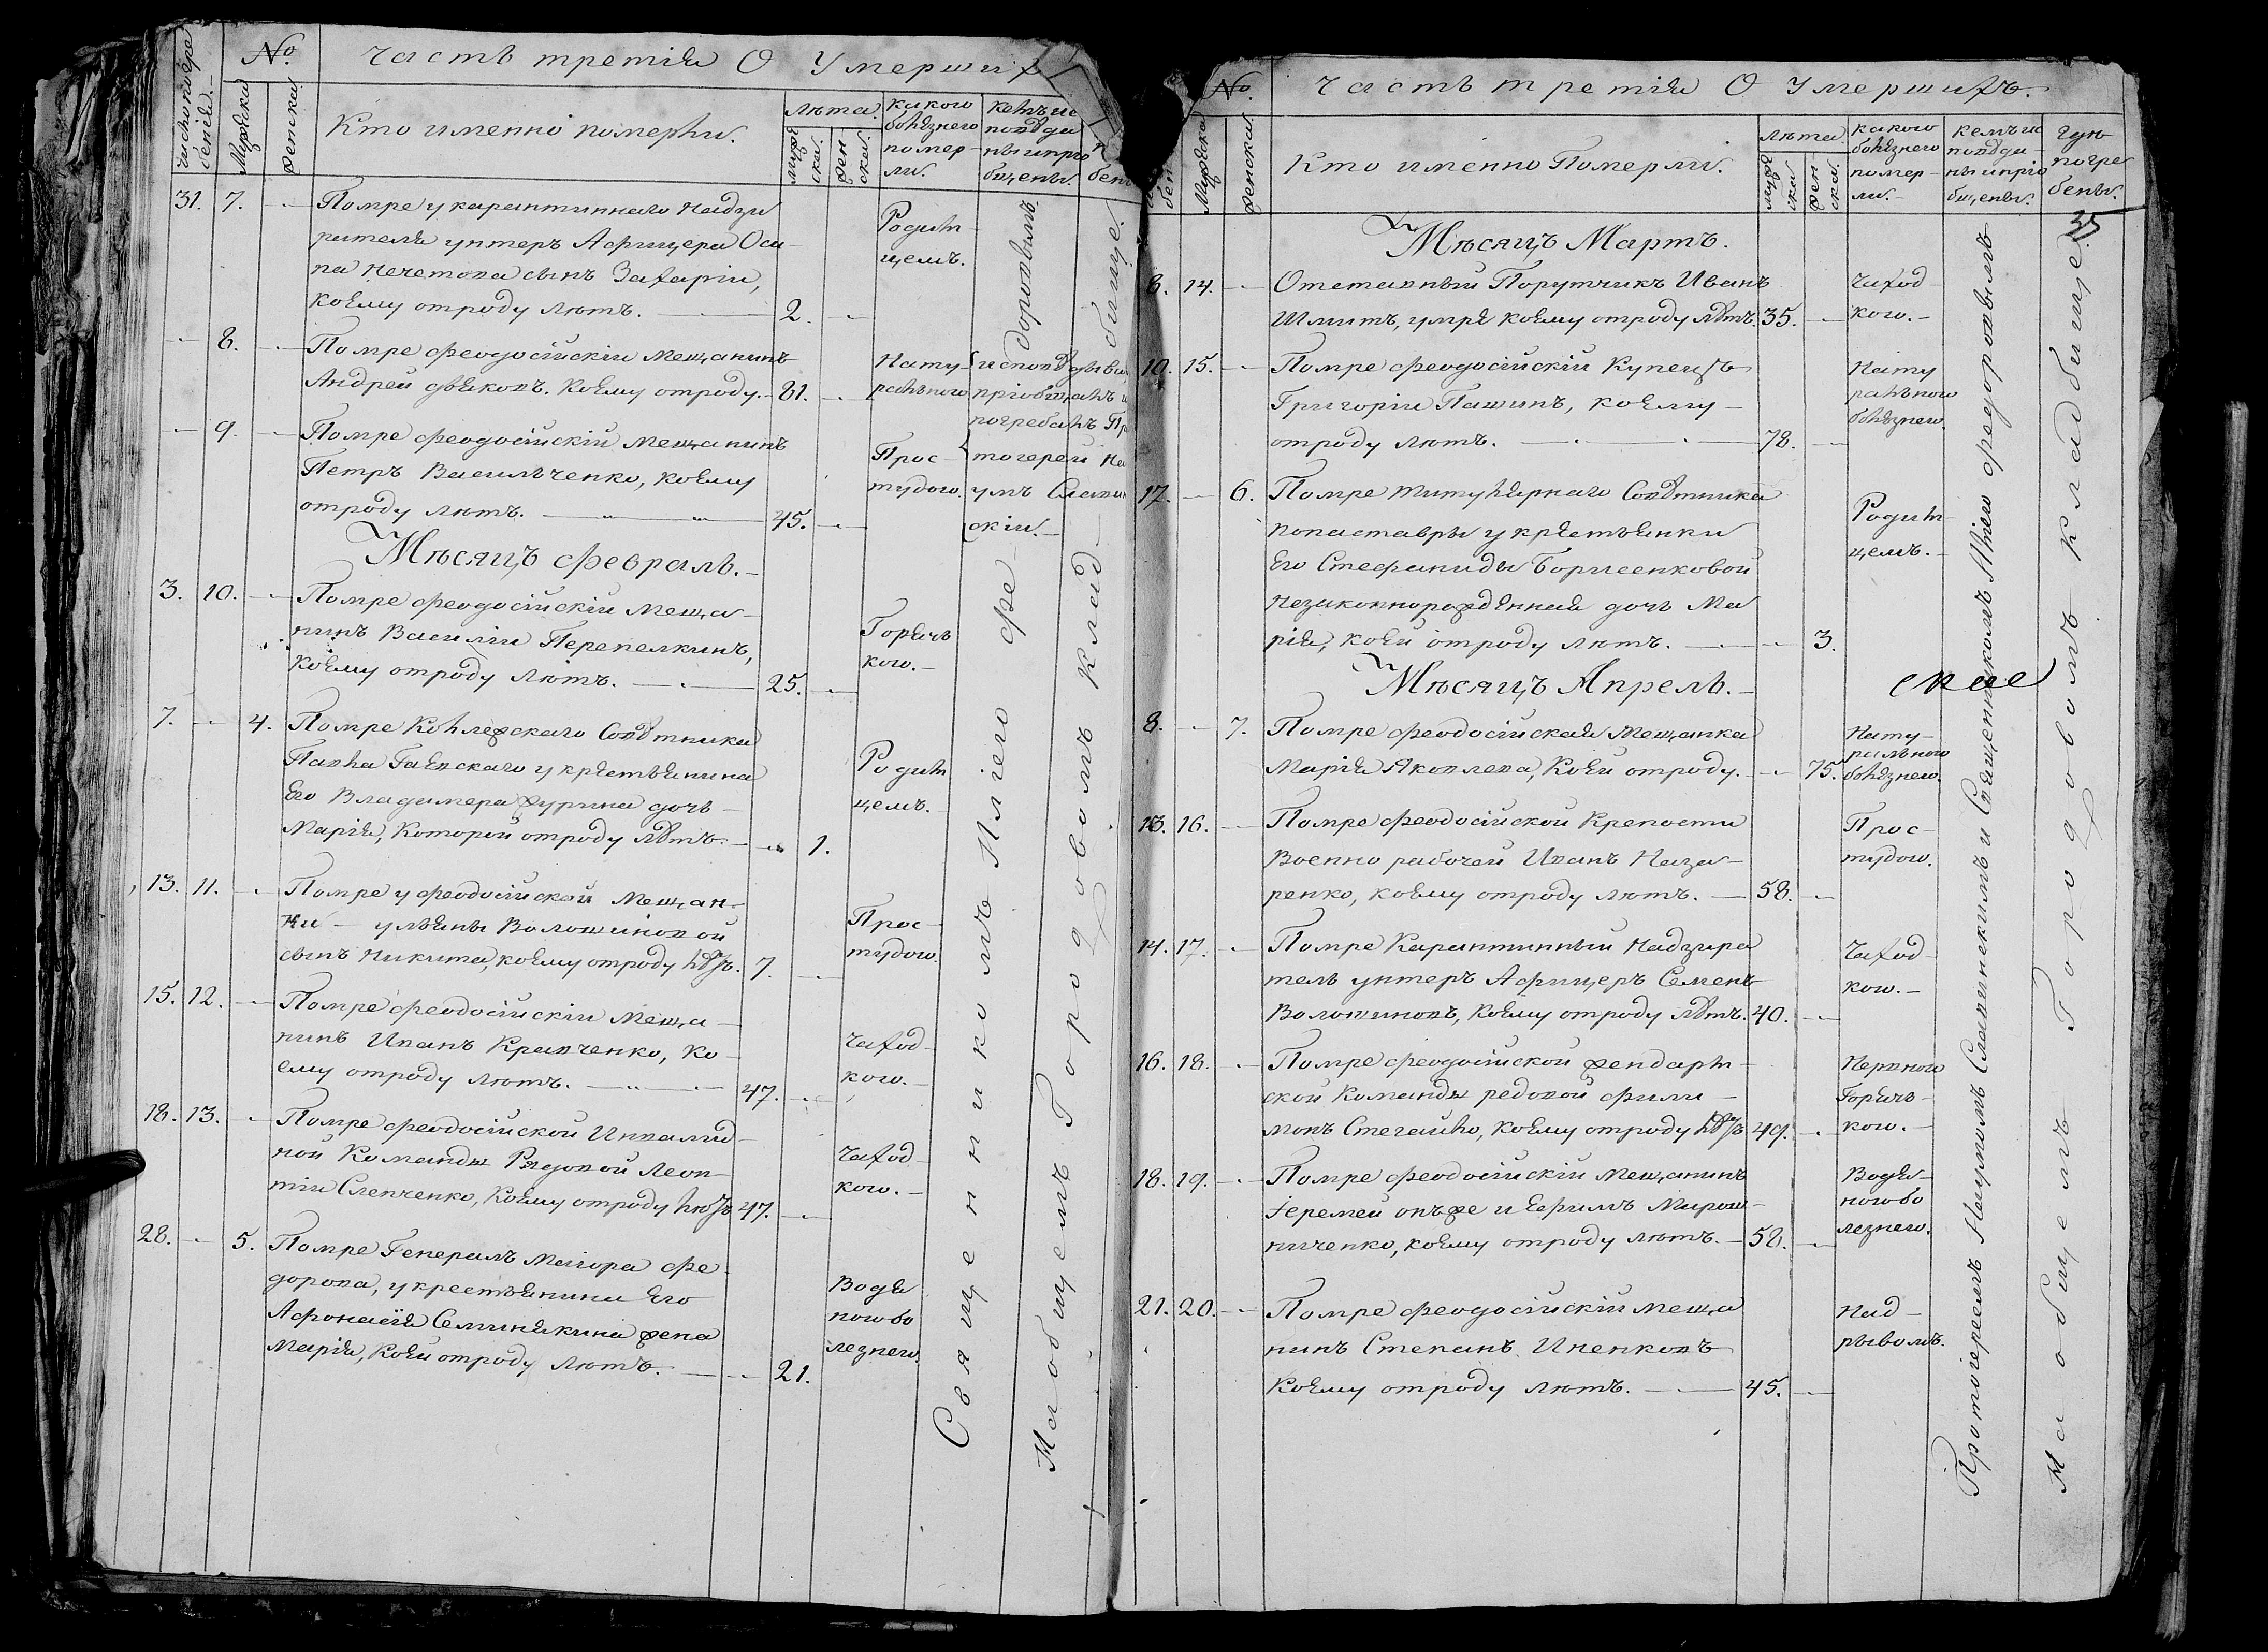 Часть третія О Умерших
№
число погребенія.
Мужеска
Женска
Кто именно померли.
лѣта.
мужеска.
женска.
какого
болѣзнею
помер-
ли.
кемъ ис
повѣда
ны и прiо
бщены.
31. 7. Помре у карантиннаго Надзи
рателя унтеръ Афицера Оси-
па Нечетова сынъ Захарiи,
коему отроду лѣтъ. 2.
Родим-
цемъ.
8. Помре феодосiйскiи Мещанинъ
Андреи дьяковъ. коему отроду. 81.
Нату-
ральною
исповѣдывы
прiобщалъ и
погребалъ Пр
9. Помре феодосiйскiи Мещанинъ
Петръ Васильченко, коему
отроду лѣтъ. 45.
Прос-
тудою.
тогереи На
умъ Слатин
скiи.
Мѣсяцъ февраль.
3. 10. Помре феодосiйскiи меща-
нинъ Василiи Перепелкинъ,
коему отроду лѣтъ. 25.
Горяч
кою.
7. 4. Помре Коллежскаго Совѣтника
Павла Гаевскаго у крѣстьянина
Его Владимера журина дочь
Марiя, Которой отроду лѣтъ. 1.
Родим
цемъ.
13. 11. Помре у феодосiйской Мещан-
ки ульяны Волошиновой
сынъ Никита, коему отроду лѣтъ. 7.
Прос-
тудою.
15. 12. Помре феодосiйскiи Меща-
нинъ Иванъ Кравченко, ко-
ему отроду лѣтъ. 47.
Чаход-
кою.
18. 13. Помре феодосiйской Инвалид-
ной Команды Рядовой Леон-
тiи Слепченко, Коему отроду лѣтъ 47.
Чаход-
кою.
28. 5. Помре Генералъ Маiора фе-
дорова, у крестьянина Его
Афонасiя Семинякина жена
Марiя, Коеи отроду лѣтъ. 21.
Водя
ною бо
лезнею.
Священникомъ Илiею федоровымъ
На общемъ Городовомъ кладбище.
Часть третія О Умершихъ.
35
№
Мужеска
Женска.
Кто именно Померли.
лѣта.
мужеска
женска.
какого
болѣзнею
помер-
ли.
кемъ ис
повѣда-
ны и прiо
бщены.
Где
погре
бены.
Мѣсяцъ Мартъ.
8. 14. Отставный Порутчикъ Иванъ
Шмитъ, умрѣ коему отроду лѣтъ. 35.
Чаход-
кою.
10. 15. Помре феодосiйскiй Купецъ
Григорiи Пашинъ, коему
отроду лѣтъ. 78.
Нату
ральною
болѣзнею.
17. 6. Помре титулярнаго Совѣтника
попаставры у крѣстьянки
Его Стефаниды Борисенковой
незаконнорожденная дочь Ма
рiя, коеи отроду лѣтъ. 3.
Родим-
цемъ.
Мѣсяцъ Апрель.
8. 7. Помре феодосiйская Мещанка
Марiя Яковлева, Коеи отроду. 75.
Нату-
ральною
болѣзнею.
13. 16. Помре феодосiйской Крепости
Военно рабочеи Иванъ Наза-
ренко, коему отроду лѣтъ. 58.
Прос-
тудою.
14. 17. Помре Карантинный Надзира
тель унтеръ Афицеръ Семенъ
Волошиновъ, Коему отроду лѣтъ. 40.
Чаход-
кою.
16. 18. Помре феодосiйской жендарм-
ской Команды редовой фили-
монъ Стегаило, Коему отроду лѣтъ 49.
Нервною
Горяч-
кою.
18. 19. Помре феодосiйскiи Мещанинъ
Iеремеи онъже и Ефимъ Мирош-
ниченко, коему отроду лѣтъ. 58.
Водя-
ною бо
лезнею.
21. 20. Помре феодосiйскiй меща
нинъ Степанъ Иненковъ
Коему отроду лѣтъ. 45.
Над-
рывомъ.
Протоiереемъ Наумомъ Слатинскимъ и Священникомъ Илiею федоровымъ
На общемъ Городовомъ кладбище.